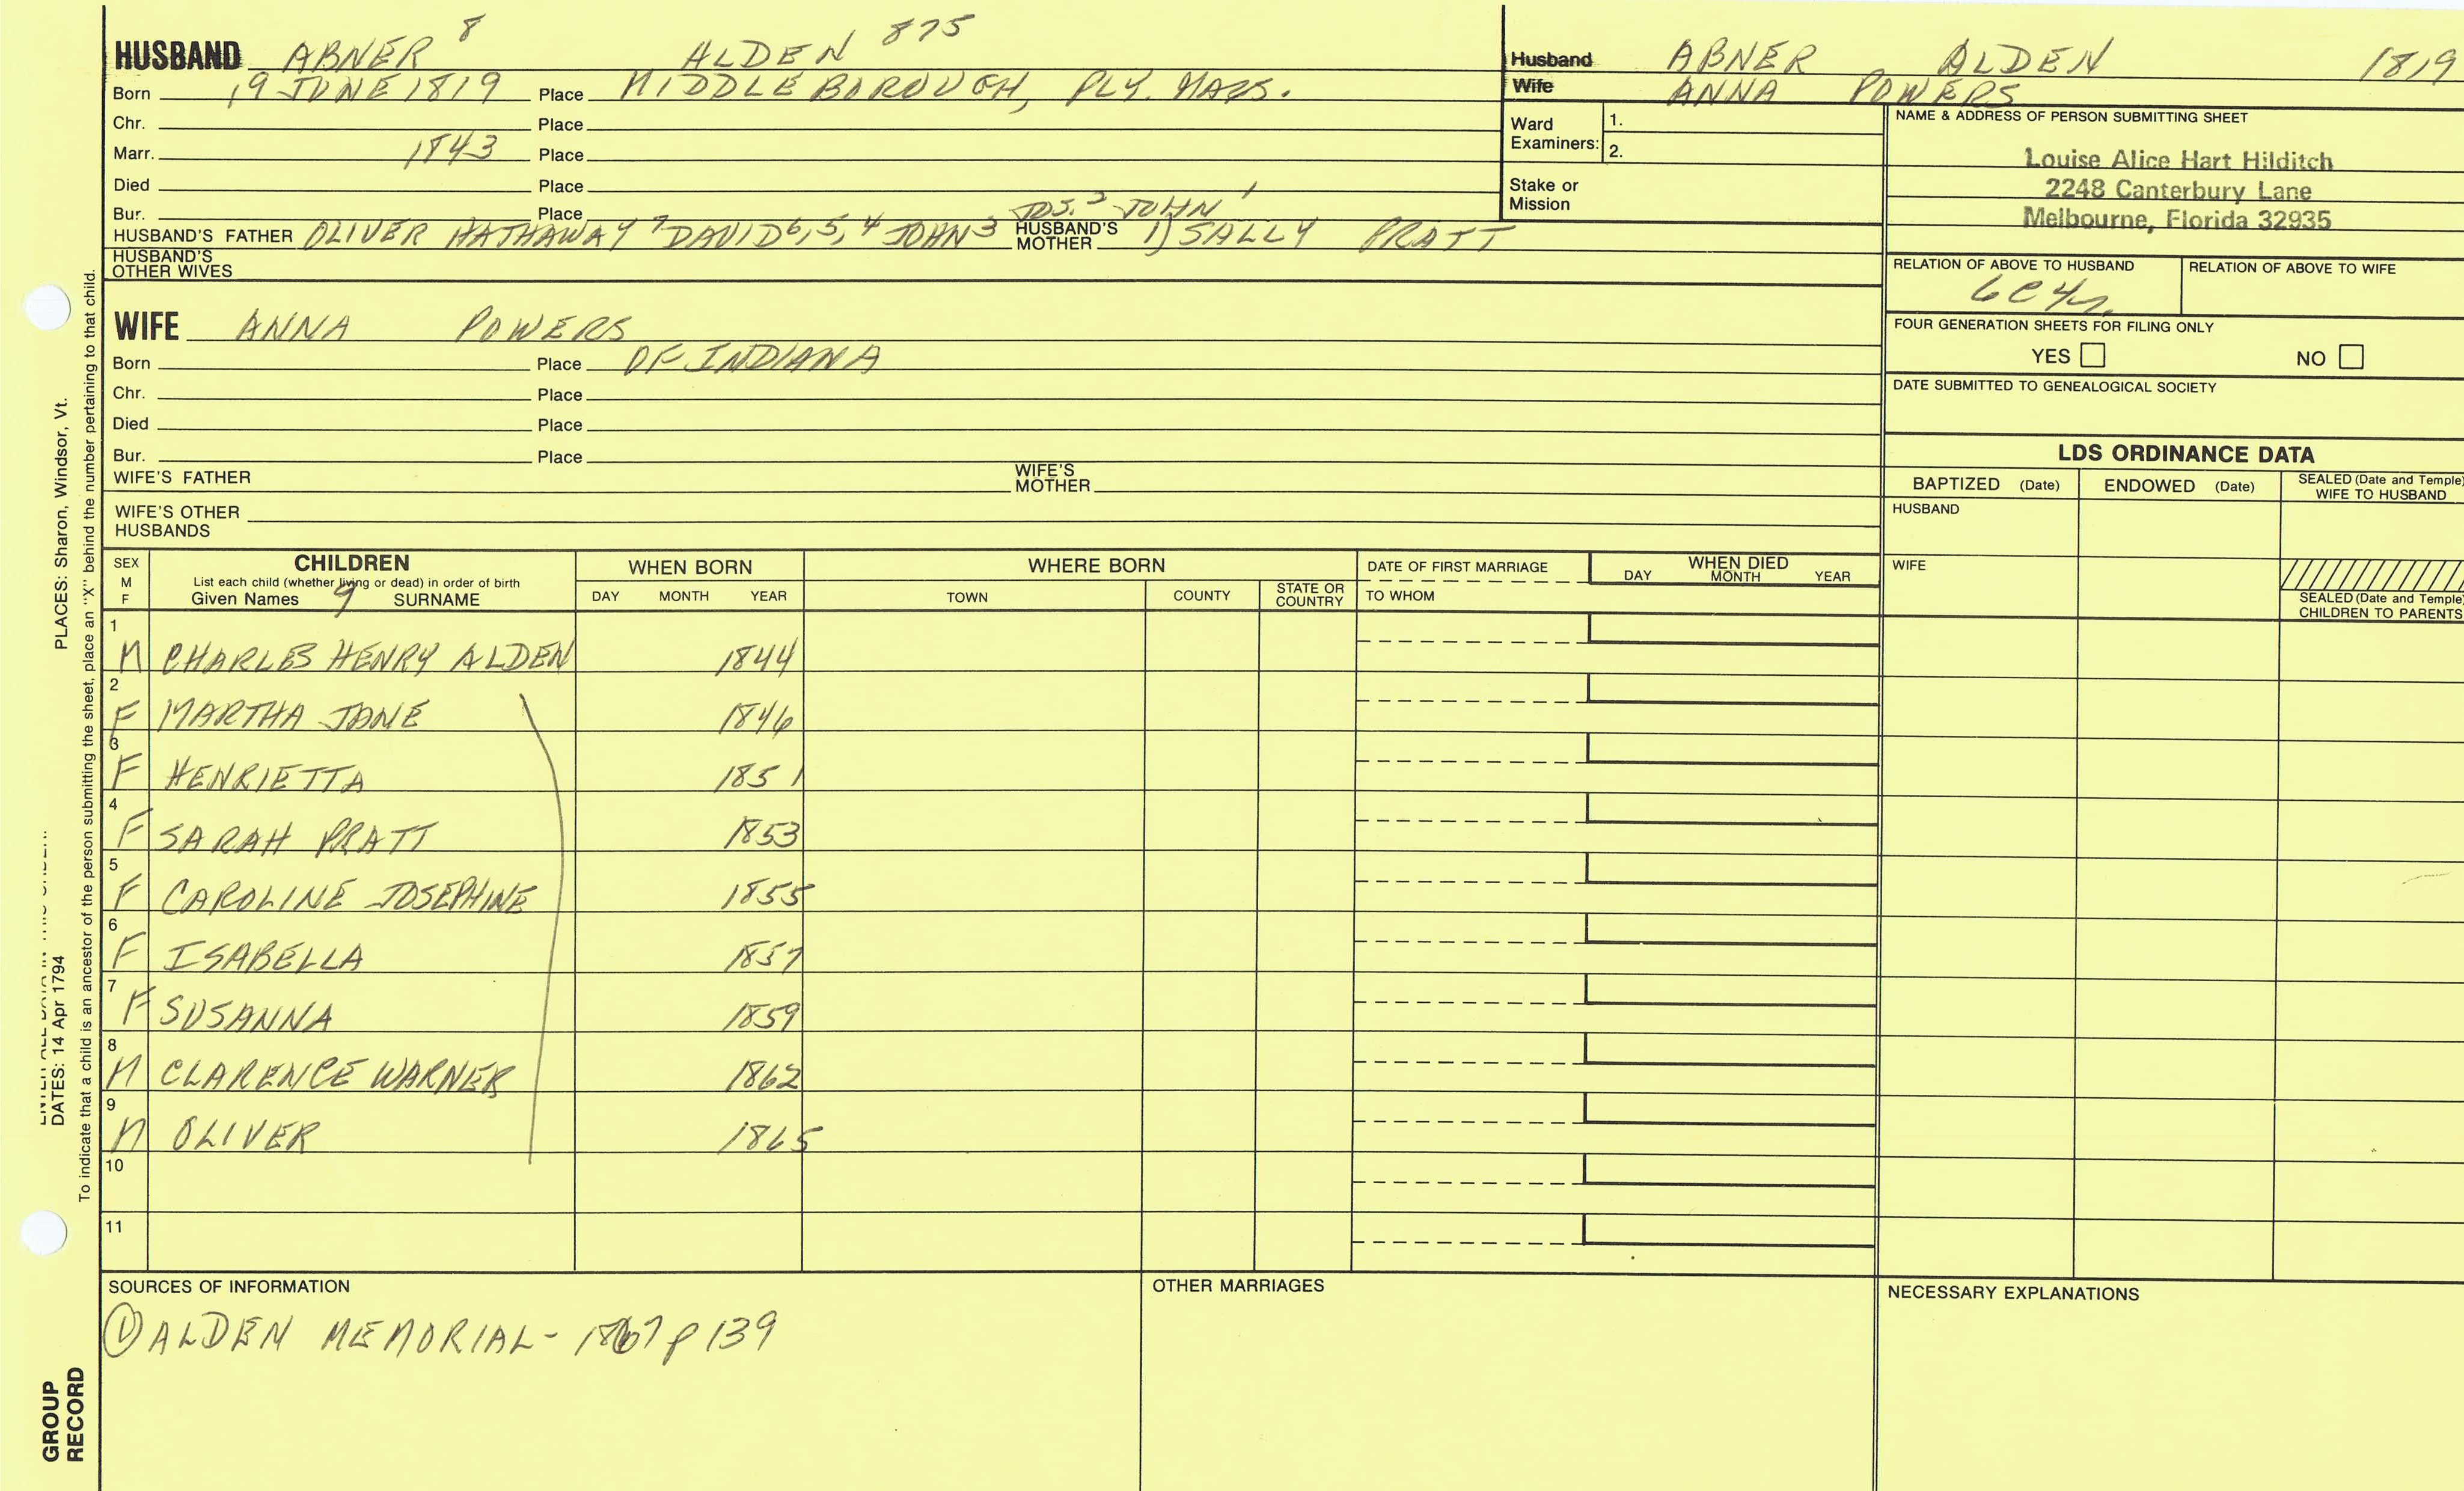 HUSBAND ABNER 8 ALDEN 875
Born 19 JUNE 1819 Place MIDDLEBOROUGH, PLY. MASS.
Chr. Place
Marr. 1843 Place
Died Place
Bur. Place JOS. 2 JOHN 1
HUSBAND'S FATHER OLIVER HATHAWAY 7 DAVID 6, 5, 4 JOHN 3 HUSBAND'S MOTHER 1) SALLY PRATT
HUSBAND'S OTHER WIVES
WIFE ANNA POWERS
Born Place OF INDIANA
Chr. Place
Died Place
Bur. Place
WIFE'S FATHER WIFE'S MOTHER
WIFE'S OTHER HUSBANDS
Husband ABNER ALDEN 1819
Wife ANNA POWERS
Ward Examiners: 1.
2.
Stake or Mission
NAME & ADDRESS OF PERSON SUBMITTING SHEET
Louise Alice Hart Hilditch
2248 Canterbury Lane
Melbourne, Florida 32935
RELATION OF ABOVE TO HUSBAND RELATION OF ABOVE TO WIFE
FOUR GENERATION SHEETS FOR FILING ONLY
YES NO
DATE SUBMITTED TO GENEALOGICAL SOCIETY
LDS ORDINANCE DATA
BAPTIZED (Date) ENDOWED (Date) SEALED (Date and Temple) WIFE TO HUSBAND
HUSBAND
WIFE
SEALED (Date and Temple) CHILDREN TO PARENTS
SEX M F
CHILDREN
List each child (whether living or dead) in order of birth
Given Names 9 SURNAME
WHEN BORN
DAY MONTH YEAR
WHERE BORN
TOWN COUNTY STATE OR COUNTRY
DATE OF FIRST MARRIAGE
TO WHOM
WHEN DIED
DAY MONTH YEAR
1 M CHARLES HENRY ALDEN 1844
2 F MARTHA JANE 1846
3 F HENRIETTA 1851
4 F SARAH PRATT 1853
5 F CAROLINE JOSEPHINE 1855
6 F ISABELLA 1857
7 F SUSANNA 1859
8 M CLARENCE WARNER 1862
9 M OLIVER 1865
10
11
SOURCES OF INFORMATION
① ALDEN MEMORIAL - 1867 p 139
OTHER MARRIAGES
NECESSARY EXPLANATIONS
PLACES: Sharon, Windsor, Vt.
DATES: 14 Apr 1794
To indicate that a child is an ancestor of the person submitting the sheet, place an "X" behind the number pertaining to that child.
GROUP RECORD